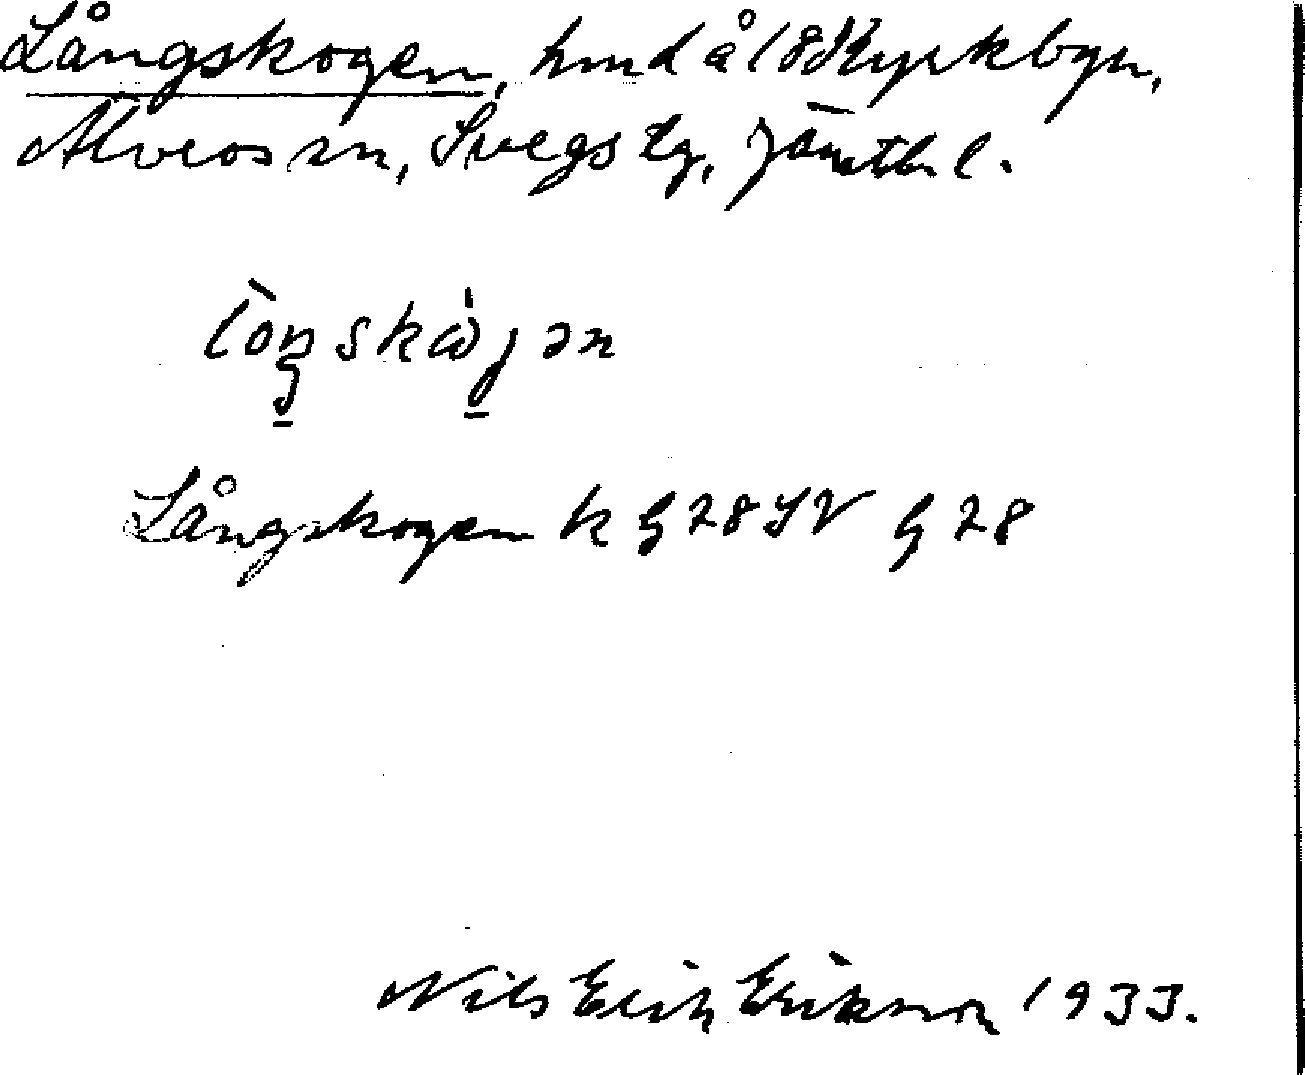 Långskogen, hmd å 18 Kyrkbyn,
Älvros sn, Svegs tg, Jämtl. l.
lòŋskὼgən
Långskogen k G 28 SV G 28
Nils Erik Eriksson 1933.